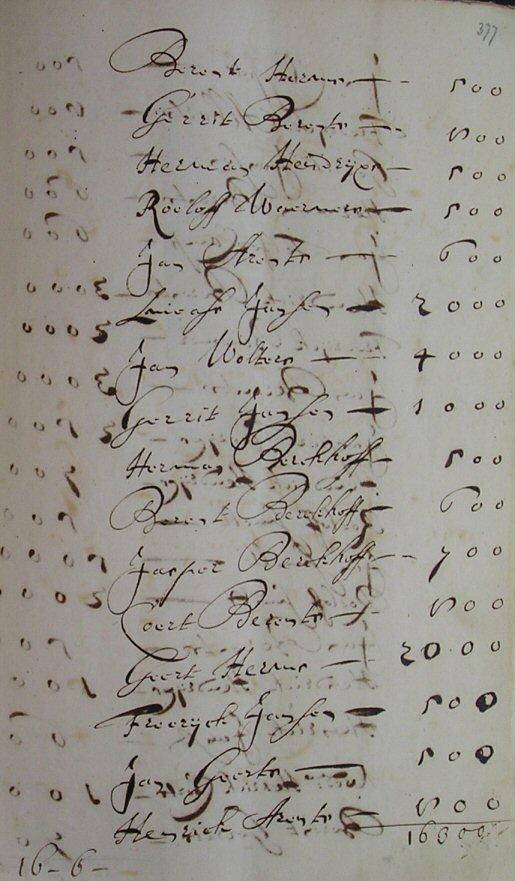 377
Berent Herms 500
Gerrit Berents 800
Herman Hendryx 500
Roeloff Waerners 500
Jan Arents 600
Lucass Jansen 2000
Jan Wolters 4000
Gerrit Jansen 1000
Herman Berckhoff 500
Berent Berckhoff 600
Jasper Berckhoff 700
Coert Berents 800
Geert Herms 2000
Frerryck Jansen 500
Jan Geerts 500
Henrick Arents 800
16300
16-6-